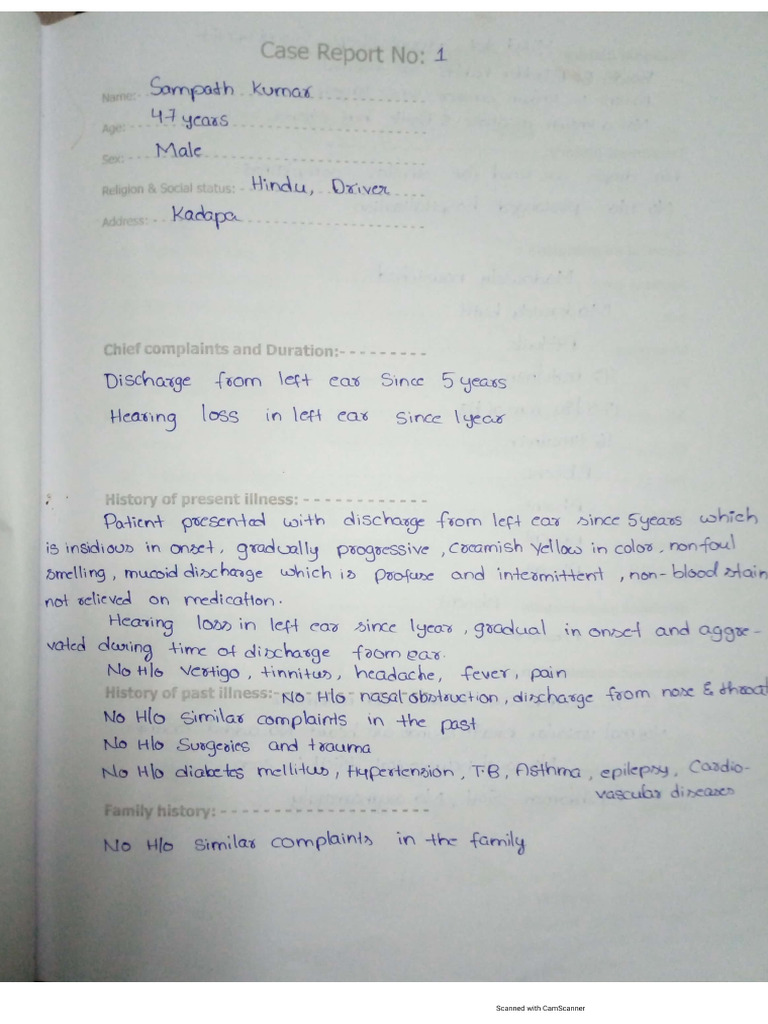 Case Report No: 1
Name:- Sampath Kumar
Age:- 47 years
Sex:- Male
Religion & Social status: - Hindu, Driver
Address:- Kadapa
Chief complaints and Duration:-
Discharge from left ear since 5 years
Hearing loss in left ear since 1 year
History of present illness: -
Patient presented with discharge from left ear since 5 years which
is insidious in onset, gradually progressive, creamish yellow in color, non foul
smelling, mucoid discharge which is profuse and intermittent, non-blood stain
not relieved on medication.
Hearing loss in left ear since 1 year, gradual in onset and aggre-
vated during time of discharge from ear.
No H/o vertigo, tinnitus, headache, fever, pain
History of past illness:- No H/o nasal obstruction, discharge from nose & throat
No H/o similar complaints in the past
No H/o Surgeries and trauma
No H/o diabetes mellitus, Hypertension, T.B, Asthma, epilepsy, Cardio-
vascular diseases
Family history: -
No H/o similar complaints in the family
Scanned with CamScanner